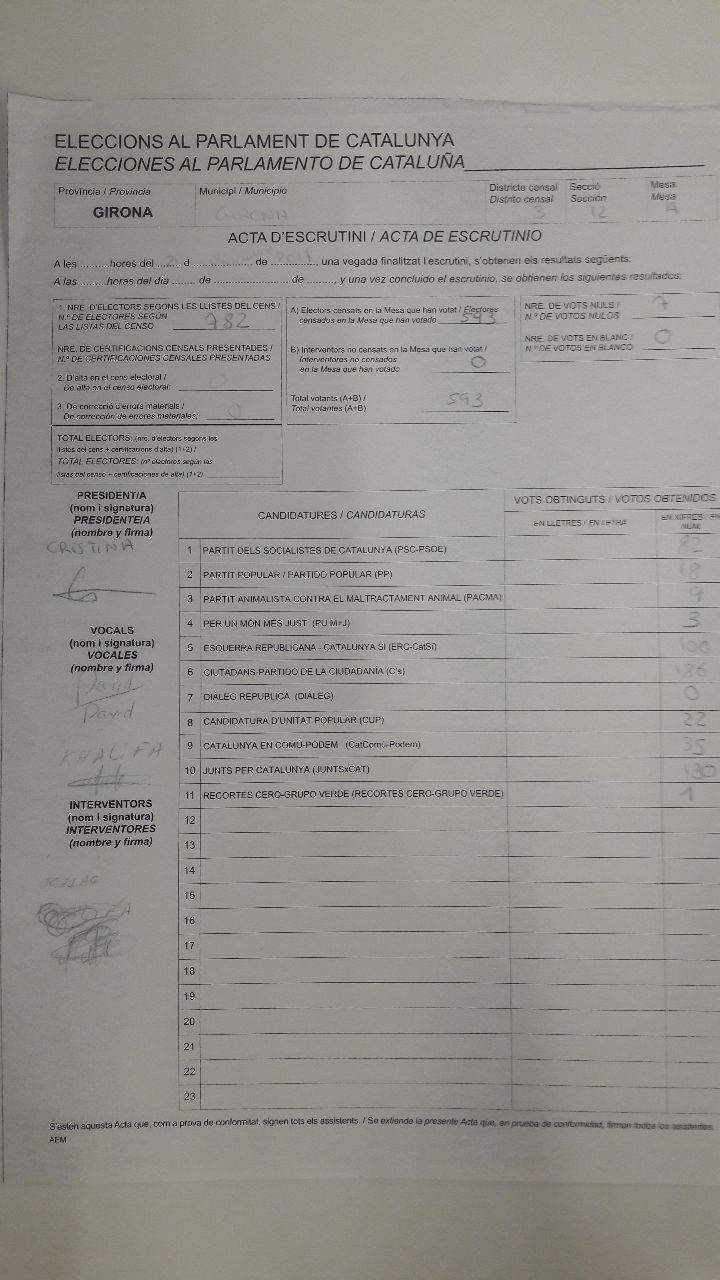 ELECCIONS AL PARLAMENT DE CATALUNYA
ELECCIONES AL PARLAMENTO DE CATALUÑA
Província / Provincia
GIRONA
Municipi / Municipio
GIRONA
Districte censal
Distrito censal
3
Secció
Sección
12
Mesa
Mesa
A
ACTA D'ESCRUTINI / ACTA DE ESCRUTINIO
A les ..........hores del ........ d .................... de ..............., una vegada finalitzat l'escrutini, s'obtenen els resultats següents:
A las ..........horas del día ........ de .................... de .............., y una vez concluido el escrutinio, se obtienen los siguientes resultados:
1. NRE. D'ELECTORS SEGONS LES LLISTES DEL CENS /
N.º DE ELECTORES SEGÚN
LAS LISTAS DEL CENSO 782
NRE. DE CERTIFICACIONS CENSALS PRESENTADES /
N.º DE CERTIFICACIONES CENSALES PRESENTADAS
2. D'alta en el cens electoral /
De alta en el censo electoral:
3. De correcció d'errors materials /
De corrección de errores materiales: 0
TOTAL ELECTORS: (nre. d'electors segons les
llistes del cens + certificacions d'alta) (1+2) /
TOTAL ELECTORES: (nº electores según las
listas del censo + certificaciones de alta) (1+2)
A) Electors censats en la Mesa que han votat / Electores
censados en la Mesa que han votado 593
B) Interventors no censats en la Mesa que han votat /
Interventores no censados
en la Mesa que han votado 0
Total votants (A+B) /
Total votantes (A+B) 593
NRE. DE VOTS NULS /
N.º DE VOTOS NULOS 7
NRE. DE VOTS EN BLANC /
N.º DE VOTOS EN BLANCO 0
PRESIDENT/A
(nom i signatura)
PRESIDENTE/A
(nombre y firma)
CRISTINA
VOCALS
(nom i signatura)
VOCALES
(nombre y firma)
David
David
KHALIFA
INTERVENTORS
(nom i signatura)
INTERVENTORES
(nombre y firma)
CANDIDATURES / CANDIDATURAS
VOTS OBTINGUTS / VOTOS OBTENIDOS
EN LLETRES / EN LETRA
EN XIFRES / EN
NÚM.
1 PARTIT DELS SOCIALISTES DE CATALUNYA (PSC-PSOE) 82
2 PARTIT POPULAR / PARTIDO POPULAR (PP) 18
3 PARTIT ANIMALISTA CONTRA EL MALTRACTAMENT ANIMAL (PACMA) 9
4 PER UN MÓN MÉS JUST (PU M+J) 3
5 ESQUERRA REPUBLICANA - CATALUNYA SI (ERC-CatSí) 100
6 CIUTADANS-PARTIDO DE LA CIUDADANÍA (C's) 186
7 DIÀLEG REPUBLICÀ (DIÀLEG) 0
8 CANDIDATURA D'UNITAT POPULAR (CUP) 22
9 CATALUNYA EN COMÚ-PODEM (CatComú-Podem) 35
10 JUNTS PER CATALUNYA (JUNTSxCAT) 130
11 RECORTES CERO-GRUPO VERDE (RECORTES CERO-GRUPO VERDE) 1
12
13
14
15
16
17
18
19
20
21
22
23
S'estén aquesta Acta que, com a prova de conformitat, signen tots els assistents. / Se extiende la presente Acta que, en prueba de conformidad, firman todos los asistentes.
AEM